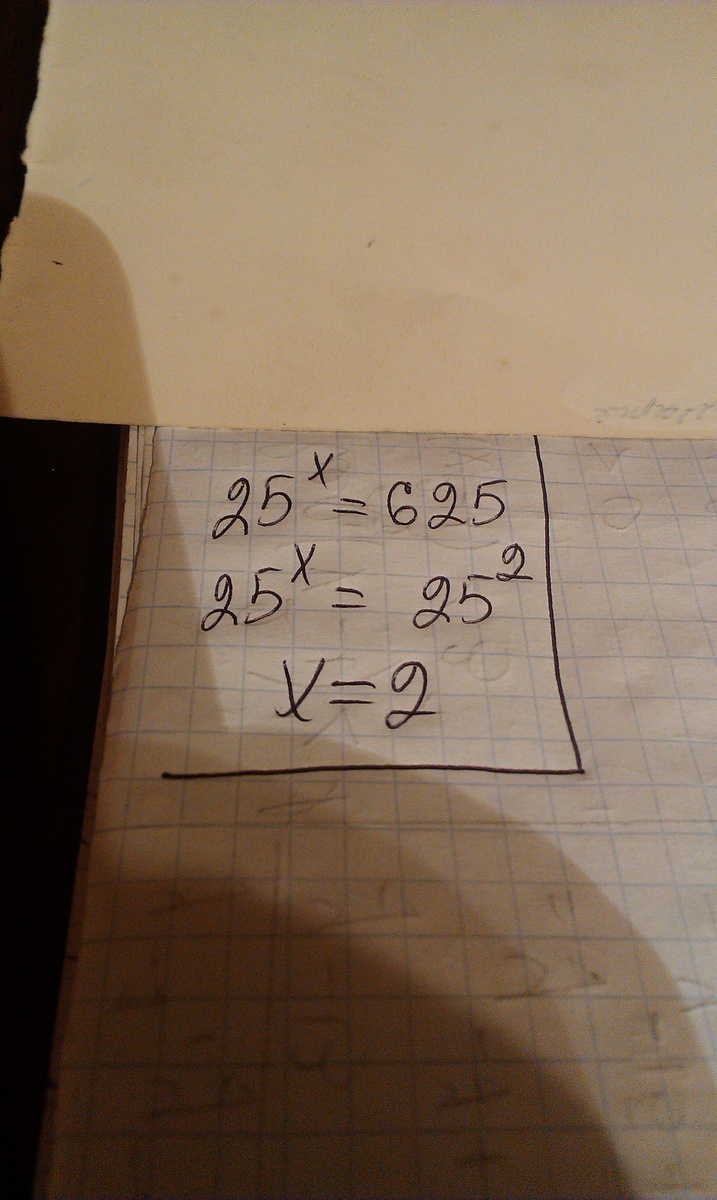 25^x = 625
25^x = 25^2
x = 2